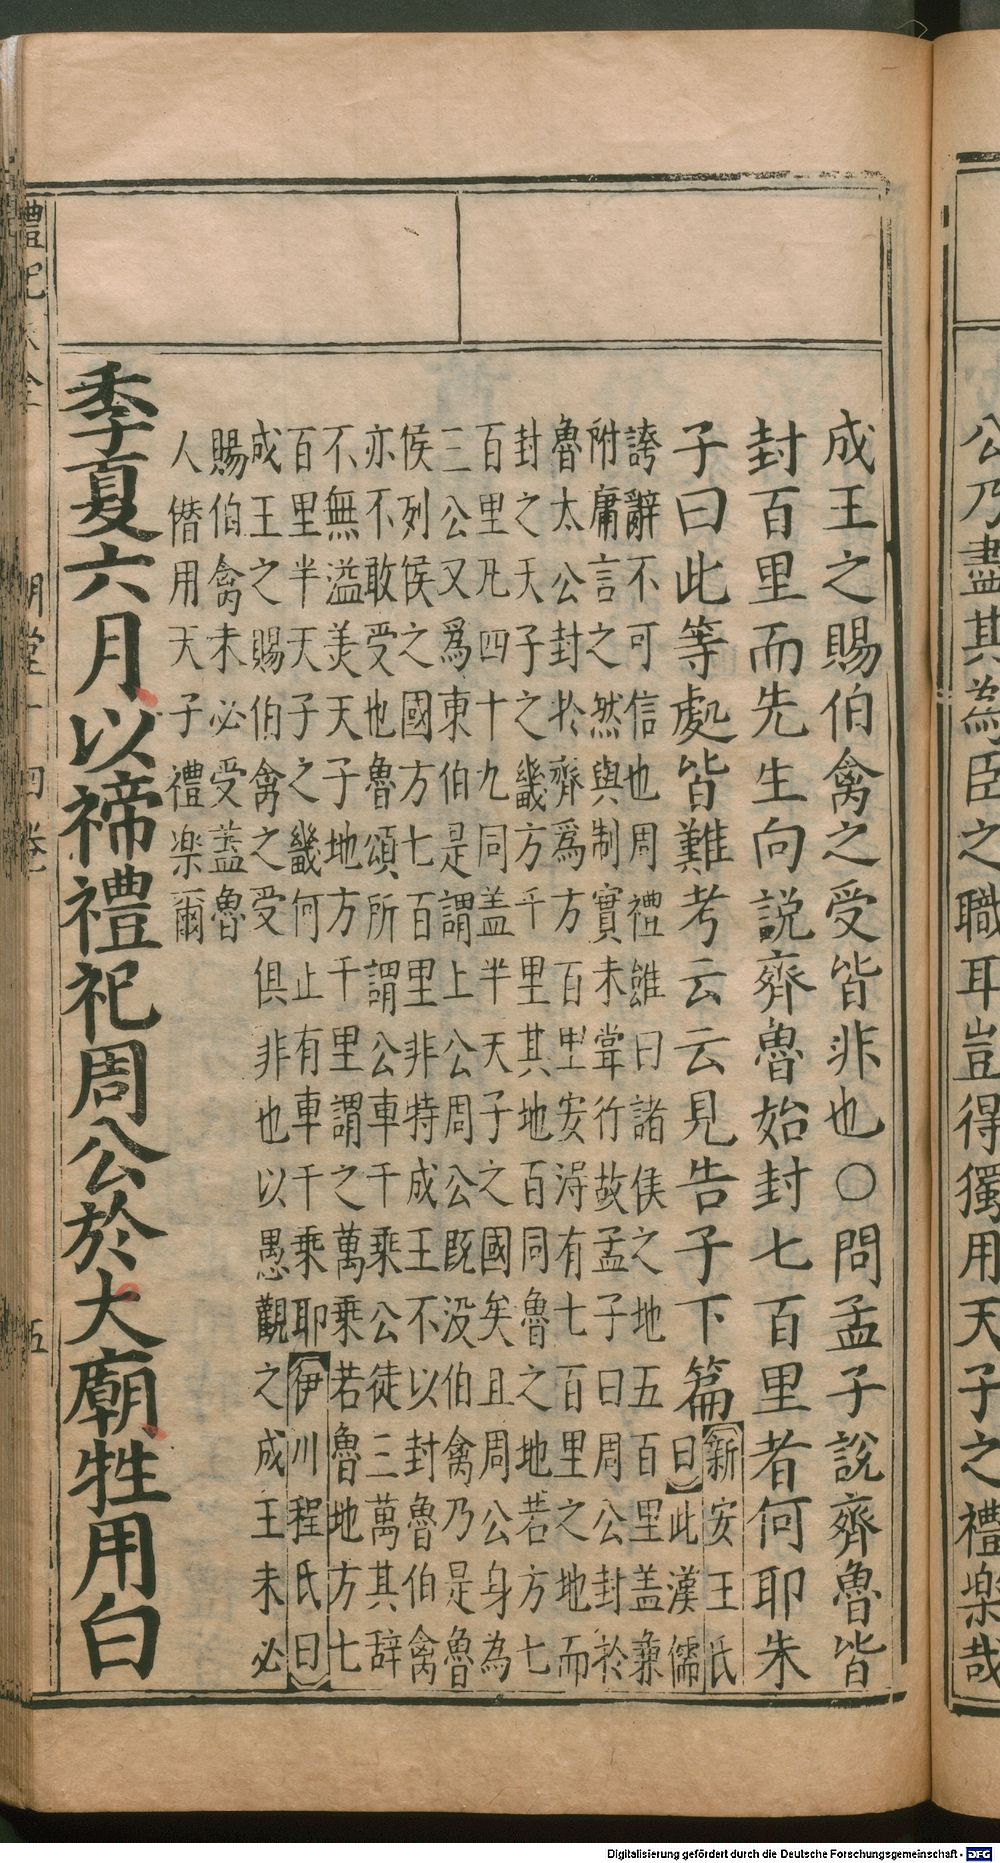 公乃盡其為臣之職耳豈得獨用天子之禮樂哉
成王之賜伯禽之受皆非也○問孟子說齊魯皆
封百里而先生向說齊魯始封七百里者何耶朱
子曰此等處皆難考云云見告子下篇
新安王氏
曰此漢儒
誇辭不可信也周禮雖曰諸侯之地五百里盖兼
附庸言之然與制實未嘗行故孟子曰周公封於
魯太公封於齊爲方百里安得有七百里之地而
封之天子之畿方千里其地百同魯之地若方七
百里凡四十九同盖半天子之國矣且周公身為
三公又爲東伯是謂上公周公既没伯禽乃是魯
侯列侯之國方七百里非特成王不以封魯伯禽
亦不敢受也魯頌所謂公車千乘公徒三萬其辞
不無溢美天子地方千里謂之萬乘若魯地方七
百里半天子之畿何止有車千乘耶伊川程氏曰
成王之賜伯禽之受俱非也以愚觀之成王未必
賜伯禽未必受盖魯
人僣用天子禮樂爾
季夏六月以禘禮祀周公於大廟牲用白
禮記大全 明堂十四卷 五
Digitalisierung gefördert durch die Deutsche Forschungsgemeinschaft - DFG